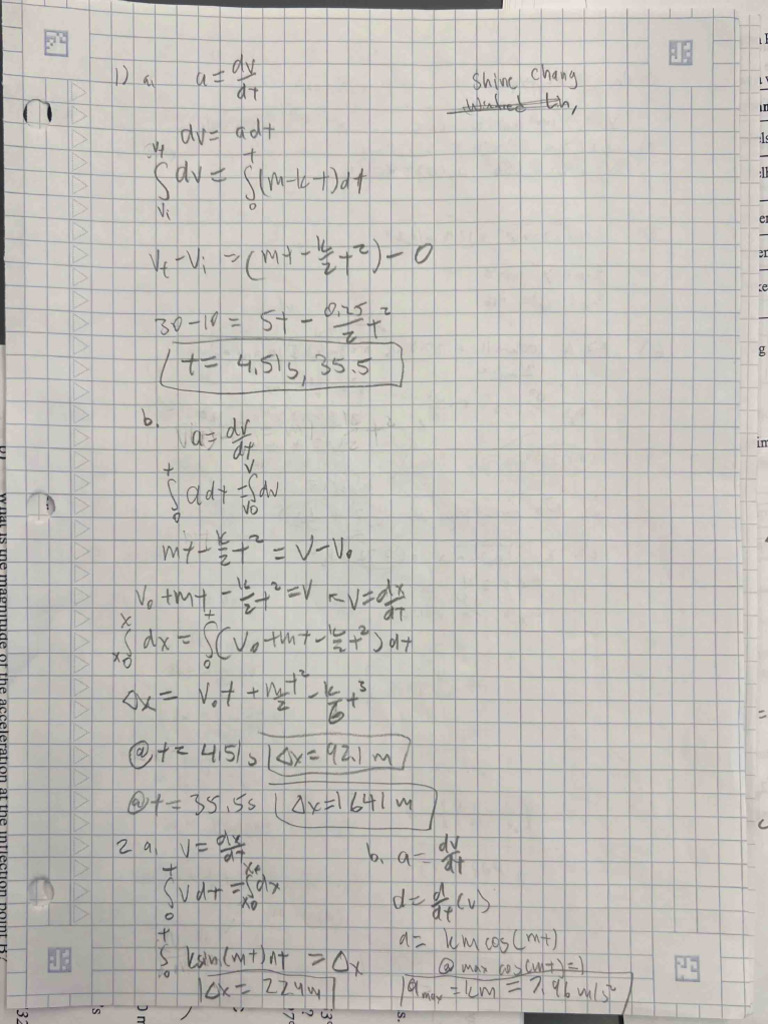 1) a. a = dv/dt
Shine Chang
dv = adt
∫ᵥᵢ^vf dv = ∫₀^t (m-kt)dt
Vf - Vi = (mt - k/2 t²) - 0
30-10 = 5t - 0.25/2 t²
t = 4.51s, 35.5
b.
a = dv/dt
∫₀^t adt = ∫ᵥ₀^v dv
mt - k/2 t² = V - V₀
V₀ + mt - k/2 t² = V ← V = dx/dt
∫ₓ₀^x dx = ∫₀^t (V₀ + mt - k/2 t²) dt
Δx = V₀t + mt²/2 - k/6 t³
@ t = 4.51s Δx = 92.1 m
@ t = 35.5s Δx = 1641 m
2 a. V = dx/dt
∫₀^t vdt = ∫ₓ₀ dx
∫₀^t ksin(mt)dt = Δx
Δx = 224m
b. a = dv/dt
a = d/dt (v)
a = km cos(mt)
@ max cos(mt) = 1
a max = km = 7.96 m/s²
what is the magnitude of the acceleration at the inflection point